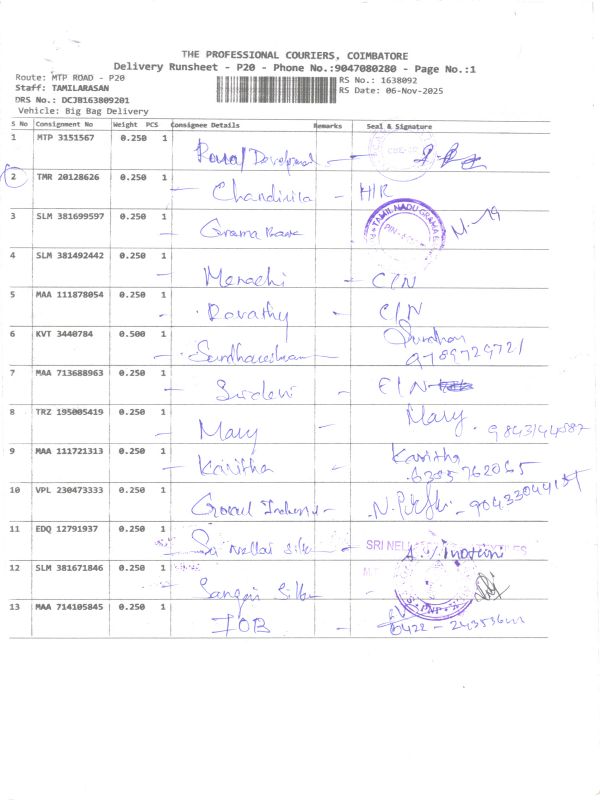 THE PROFESSIONAL COURIERS, COIMBATORE
Delivery Runsheet - P20 - Phone No.:9047080280 - Page No.:1
Route: MTP ROAD - P20
RS No.: 1638092
Staff: TAMILARASAN
RS Date: 06-Nov-2025
DRS No.: DCJB163809201
Vehicle: Big Bag Delivery
S No Consignment No Weight PCS Consignee Details Remarks Seal & Signature
1 MTP 3151567 0.250 1
2 TMR 20128626 0.250 1 Chandinila - H/R
3 SLM 381699597 0.250 1 Grama Bank - TAMIL NADU GRAMA M-19
4 SLM 381492442 0.250 1 Menachi - C/N
5 MAA 111878054 0.250 1 Ravathy - C/N
6 KVT 3440784 0.500 1 9789729721
7 MAA 713688963 0.250 1 Sridevi - E/N
8 TRZ 195005419 0.250 1 Mary - Mary.
9 MAA 111721313 0.250 1 Kavitha - Kavitha
10 VPL 230473333 0.250 1
11 EDQ 12791937 0.250 1 Sri Nellai Silk - SRI NELL
12 SLM 381671846 0.250 1
13 MAA 714105845 0.250 1 IOB - 0422 -